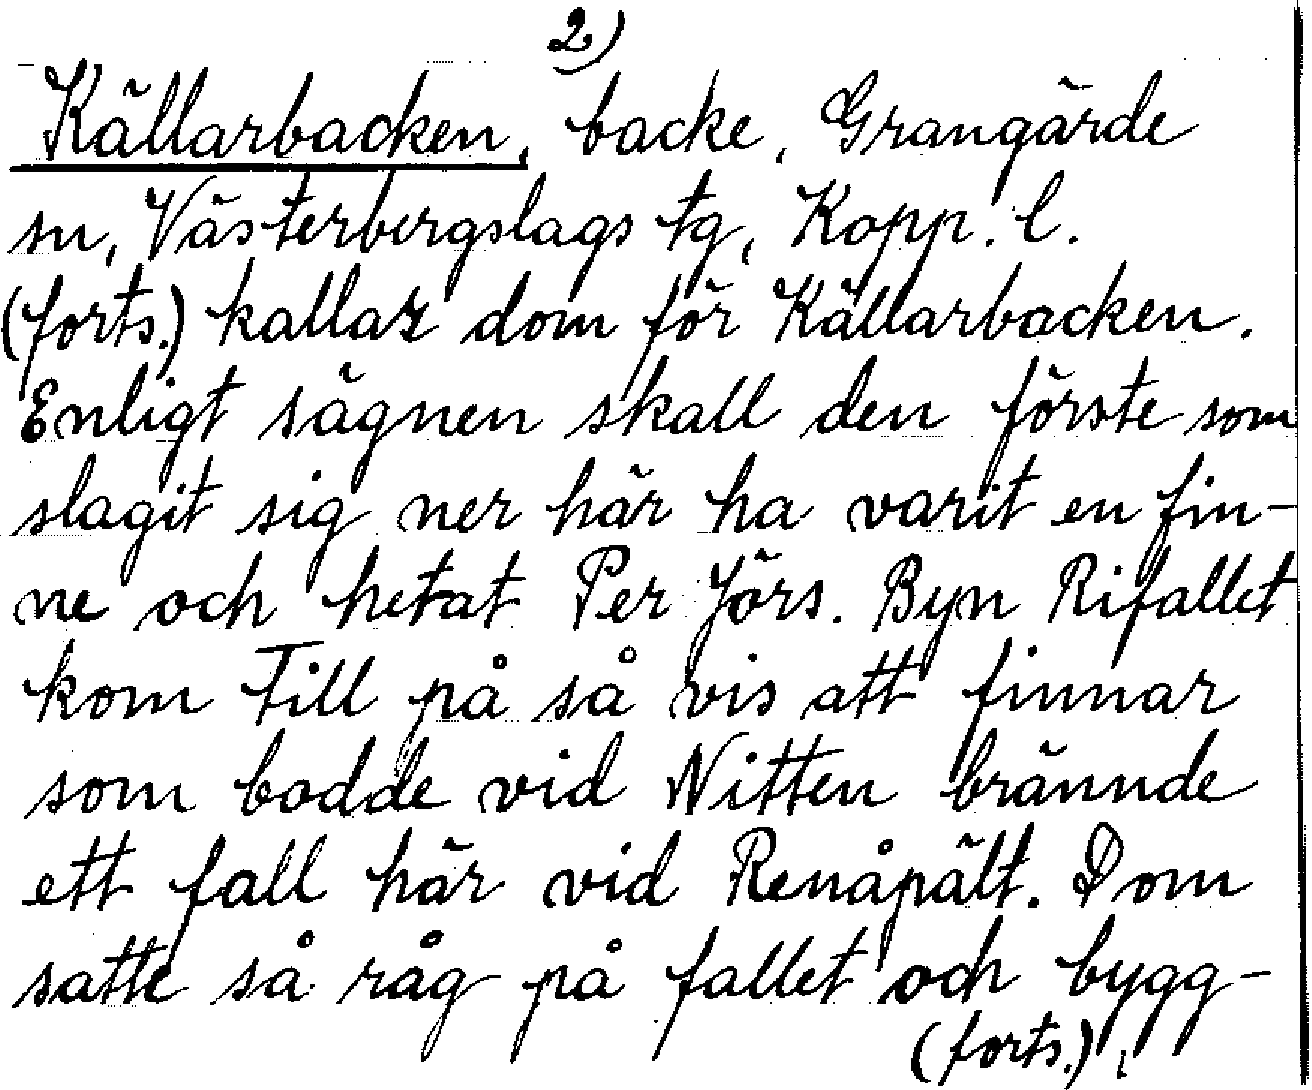 2)
Källarbacken, backe, Grangärde
sn, Västerbergslags tg, Kopp. l.
(forts.) kallar dom för Källarbacken.
Enligt sägnen skall den förste som
slagit sig ner här ha varit en fin-
ne och hetat Per Jörs. Byn Rifallet
kom till på så vis att finnar
som bodde vid Nitten brännde
ett fall här vid Renåpält. Dom
satte så råg på fallet och bygg-
(forts.)